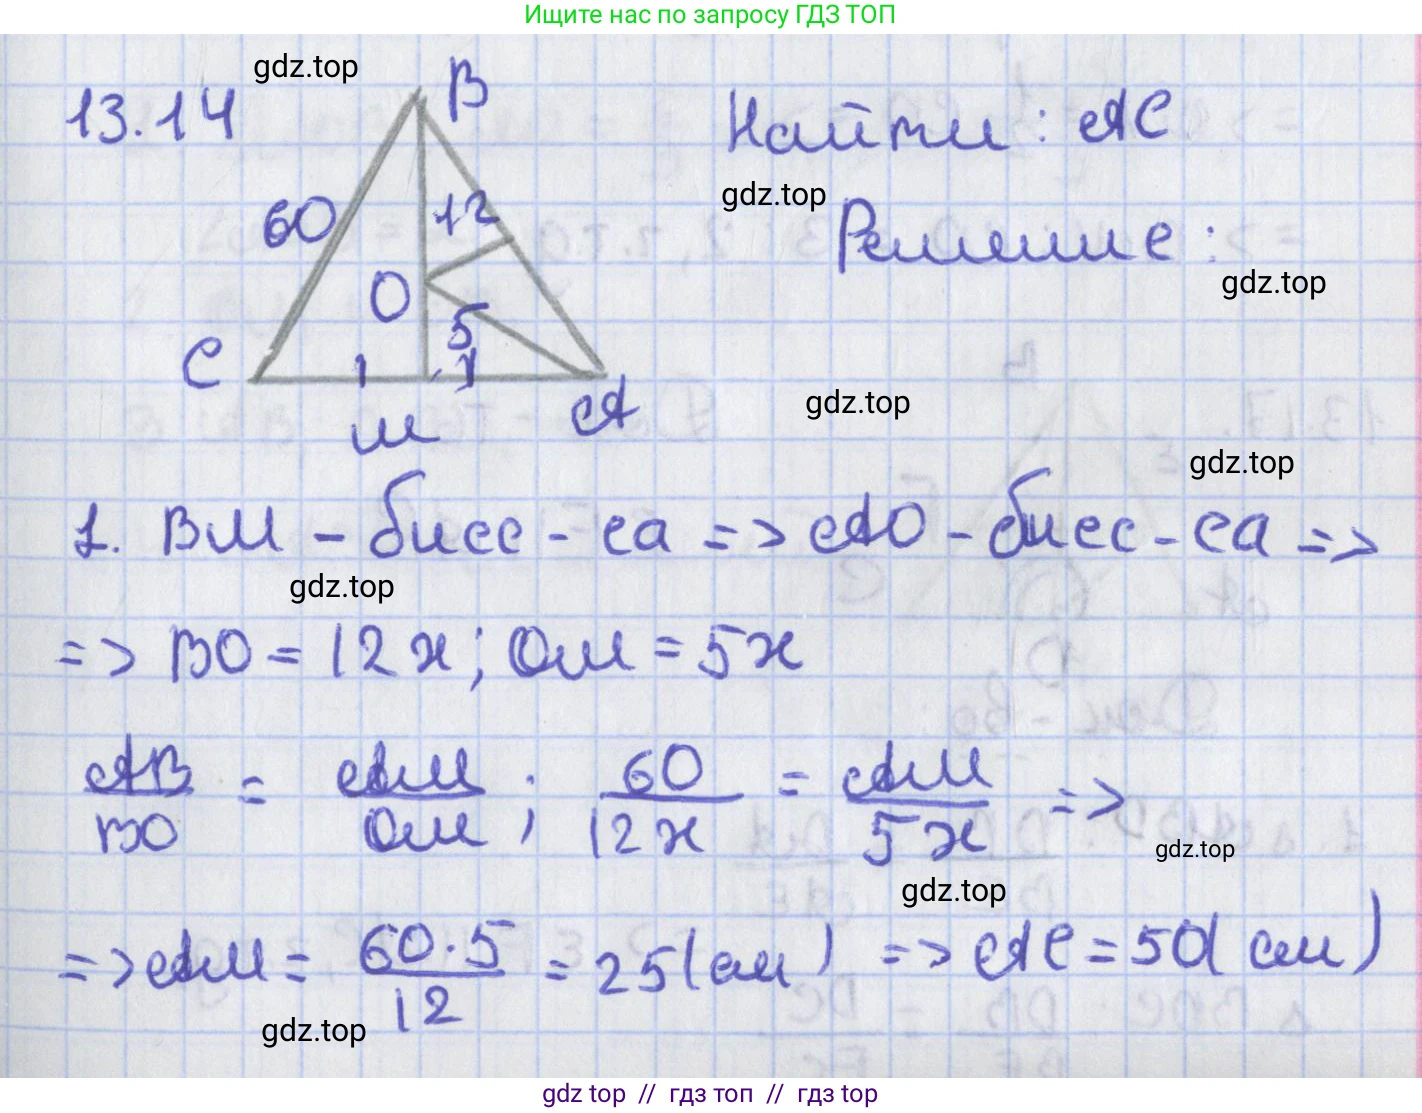 Ищите нас по запросу ГДЗ ТОП
gdz.top
13.14
B
Найти: AC
60
12
gdz.top
Решение:
gdz.top
O
5
C
M
A
gdz.top
gdz.top
1. BM - бисс-са => AO - бисс-са =>
gdz.top
=> BO = 12x; OM = 5x
AB/BO = AM/OM; 60/12x = AM/5x =>
gdz.top
gdz.top
=> AM = 60·5/12 = 25(см) => AC = 50(см)
gdz.top
gdz top // гдз топ // гдз top